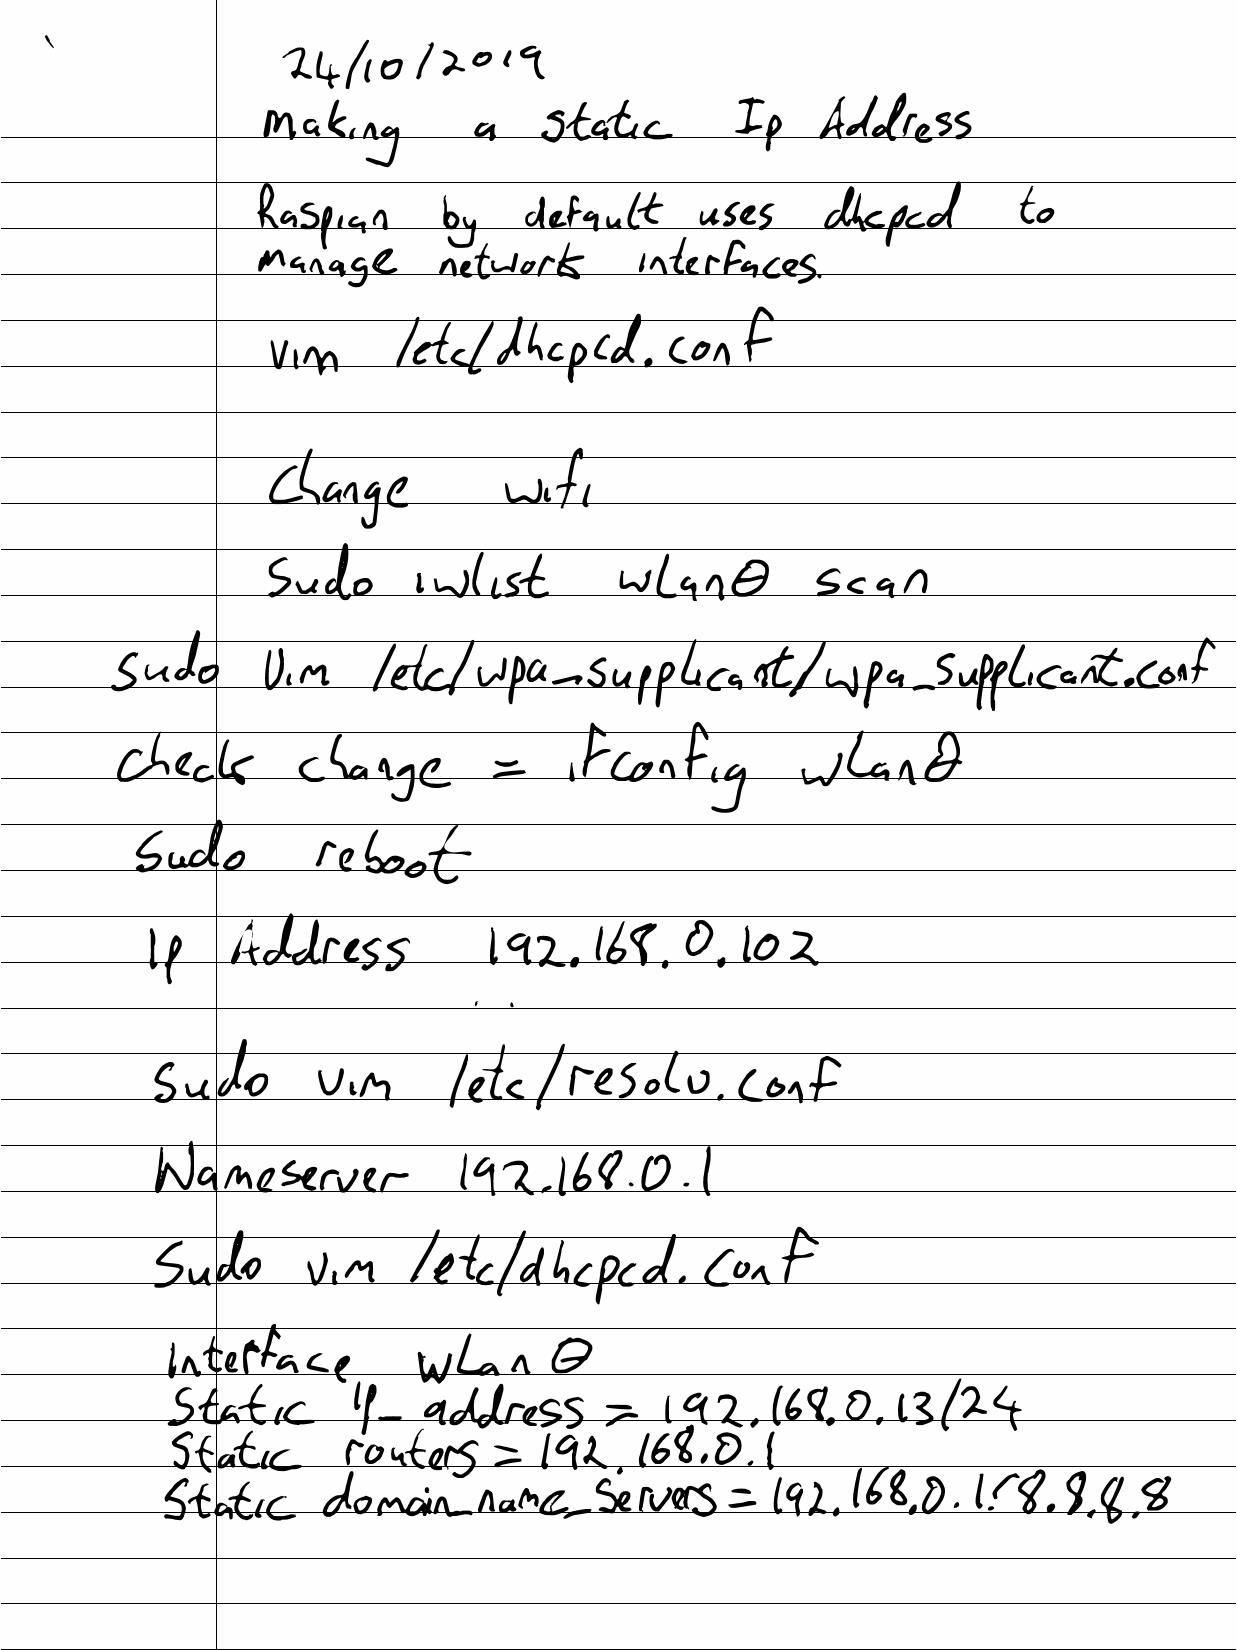 24/10/2019
Making a static Ip Address
Raspian by default uses dhcpcd to
manage network interfaces.
vim /etc/dhcpcd.conf
Change wifi
Sudo iwlist wlan0 scan
sudo vim /etc/wpa_supplicant/wpa_supplicant.conf
check change = ifconfig wlan0
sudo reboot
Ip Address 192.168.0.102
Sudo vim /etc/resolv.conf
Nameserver 192.168.0.1
Sudo vim /etc/dhcpcd.conf
Interface wlan0
Static ip_address = 192.168.0.13/24
Static routers = 192.168.0.1
Static domain_name_servers = 192.168.0.1 8.8.8.8